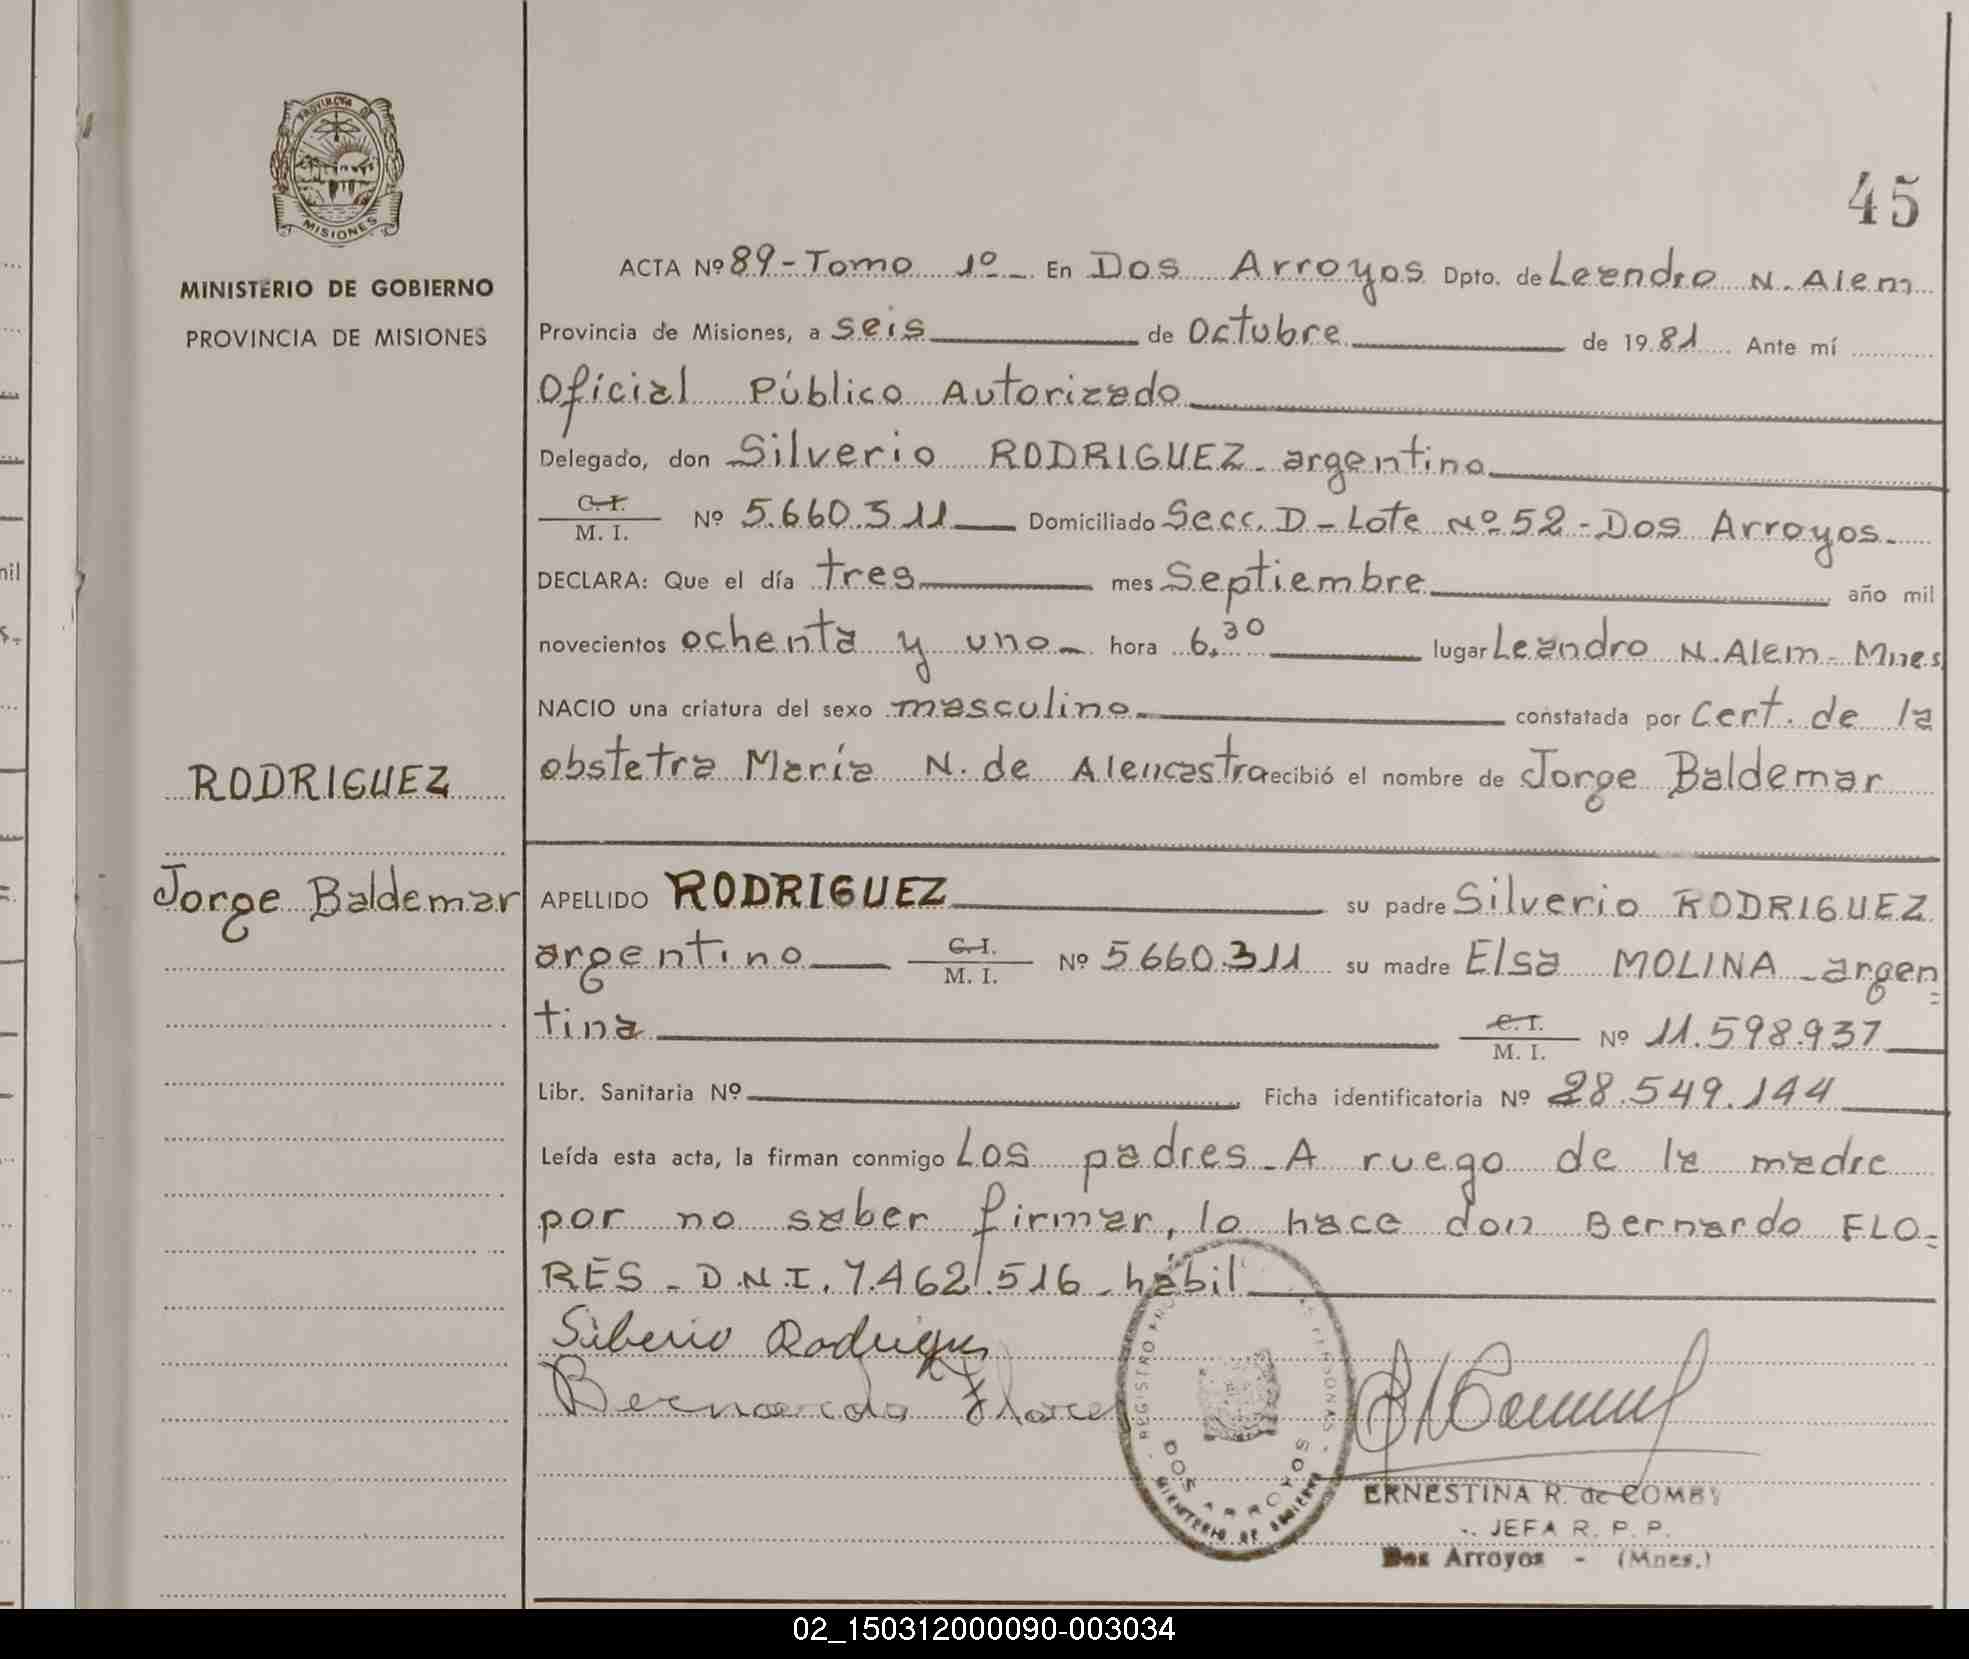 PROVINCIA DE
MISIONES
MINISTERIO DE GOBIERNO
PROVINCIA DE MISIONES
RODRIGUEZ
Jorge Baldemar
45
ACTA Nº 89-Tomo 1º- En Dos Arroyos Dpto. de Leandro N. Alem
Provincia de Misiones, a seis de Octubre de 1981 Ante mí
Oficial Público Autorizado
Delegado, don Silverio RODRIGUEZ - argentino
C.I.
M. I. Nº 5.660.311 Domiciliado Secc. D - Lote Nº 52 - Dos Arroyos.
DECLARA: Que el día tres mes Septiembre año mil
novecientos ochenta y uno - hora 6,30 lugar Leandro N. Alem - Mnes
NACIO una criatura del sexo masculino constatada por Cert. de la
obstetra María N. de Alencastro recibió el nombre de Jorge Baldemar
APELLIDO RODRIGUEZ su padre Silverio RODRIGUEZ
argentino C.I.
M. I. Nº 5.660.311 su madre Elsa MOLINA - argen=
tina C.I.
M. I. Nº 11.598.937
Libr. Sanitaria Nº Ficha identificatoria Nº 28.549.144
Leída esta acta, la firman conmigo Los padres - A ruego de la madre
por no saber firmar, lo hace don Bernardo FLO=
RES - D.N.I. 7.462.516 - hábil
Silberio Rodrigues
Bernardo Flores
REGISTRO PERSONAS
DOS ARROYOS
MINISTERIO DE GOBIERNO
ERNESTINA R. de COMBY
JEFA R. P. P.
Dos Arroyos - (Mnes.)
mil
02_150312000090-003034